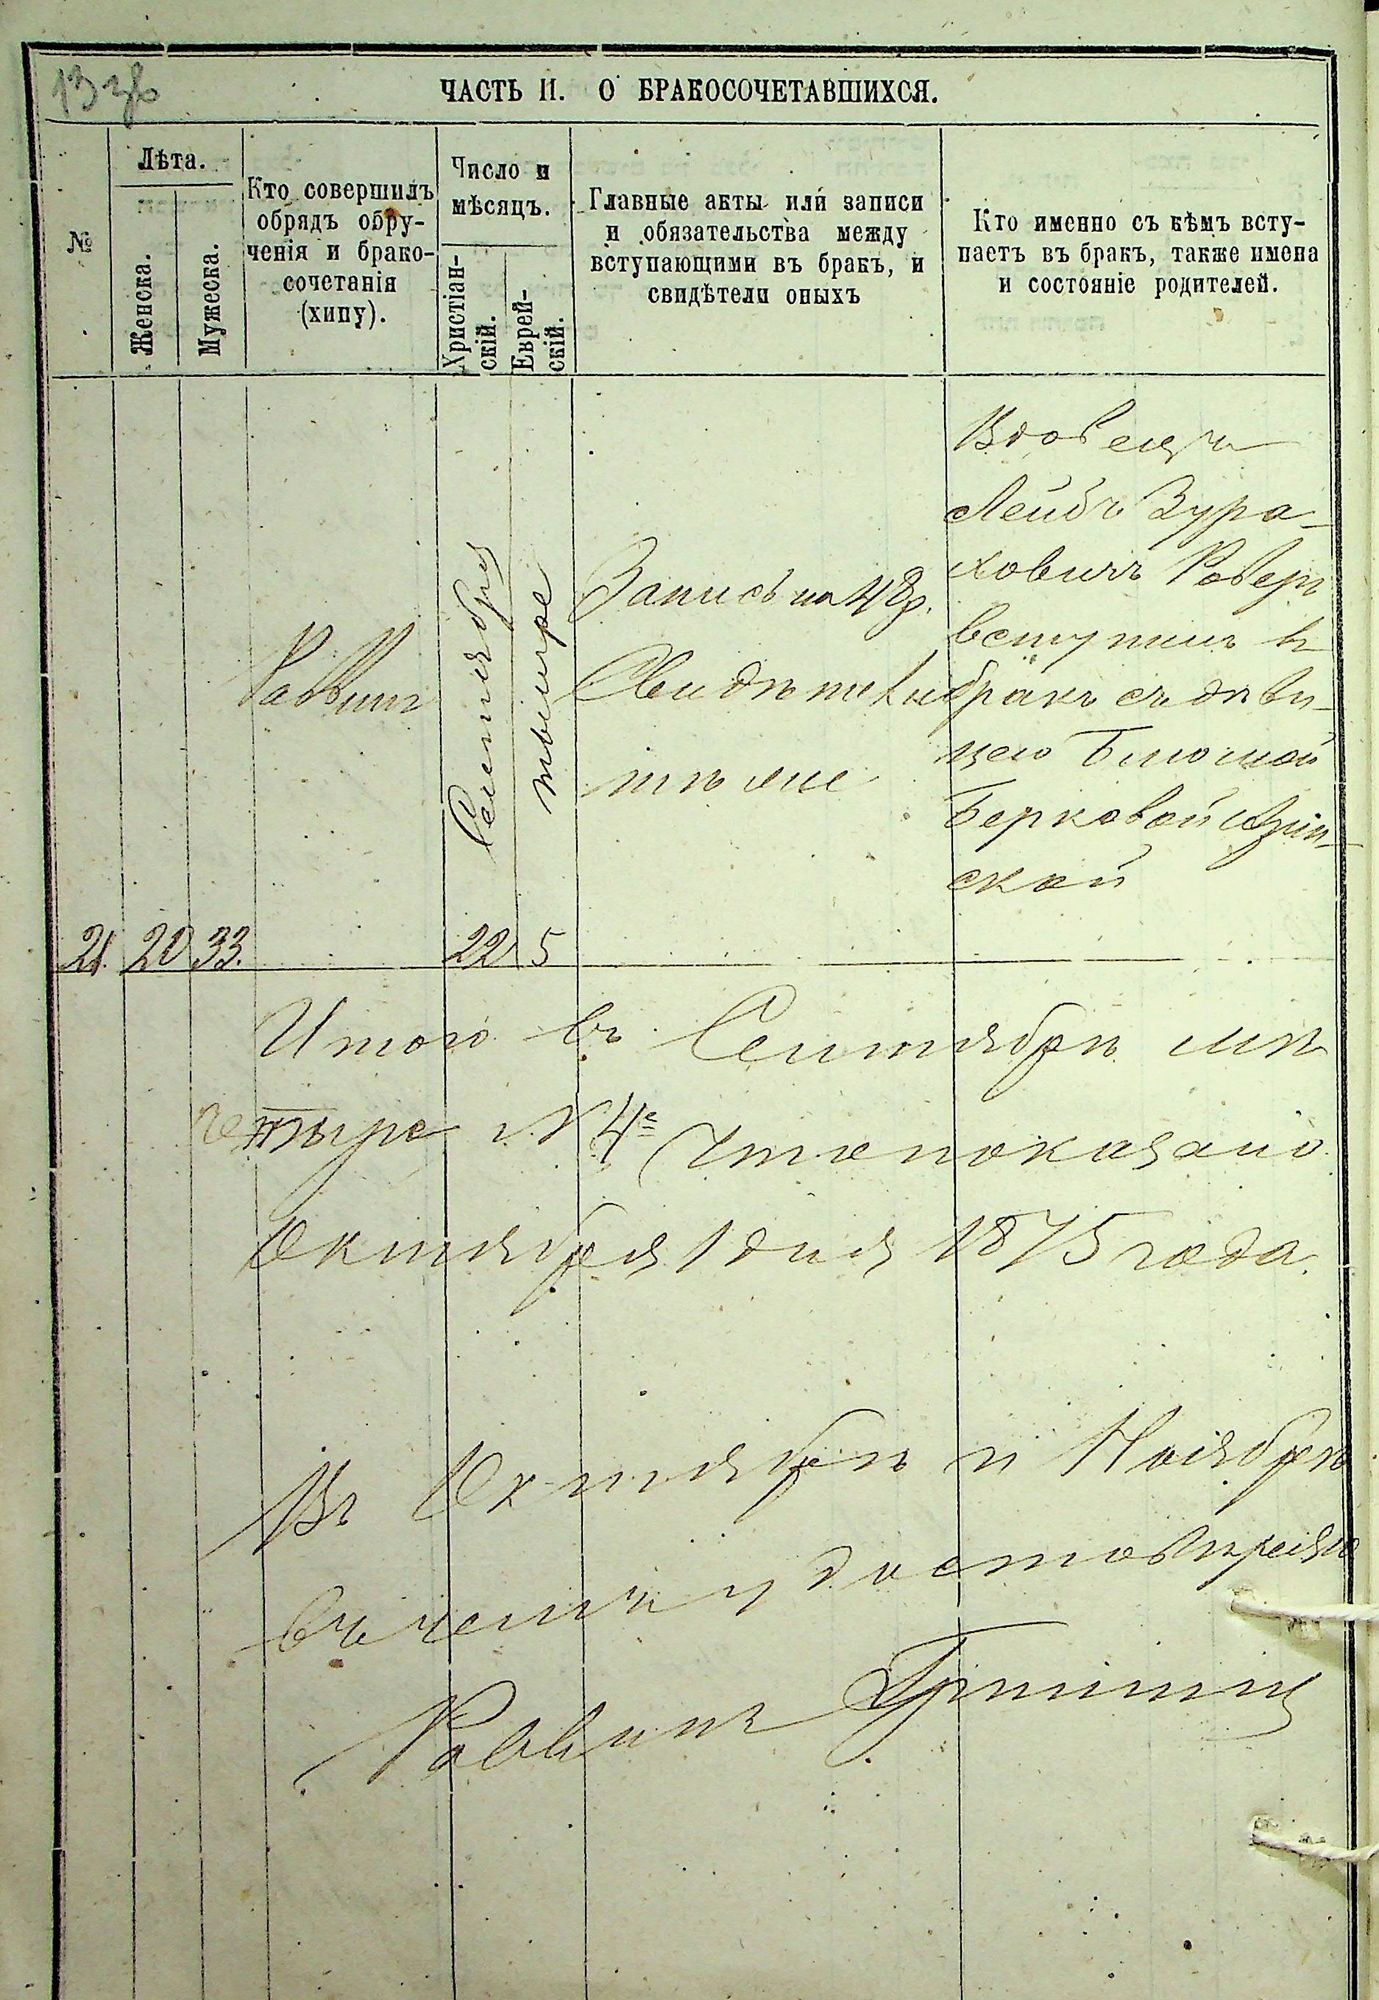 13 зв
ЧАСТЬ II. О БРАКОСОЧЕТАВШИХСЯ.
№
Лѣта.
Женска.
Мужеска.
Кто совершилъ
обрядъ обру-
ченія и брако-
сочетанія
(хипу).
Число и
мѣсяцъ.
Христіан-
скій.
Еврей-
скій.
Главные акты или записи
и обязательства между
вступающими въ бракъ, и
свидѣтели оныхъ
Кто именно съ кѣмъ всту-
паетъ въ бракъ, также имена
и состояніе родителей.
21. 20 33.
Раввинъ
Сентября
22
тишре
5
Запись на 48р.
Свидѣтели
тѣже
Вдовецъ
Лейбъ Зура-
ховичъ
вступилъ въ
бракъ съ дѣви-
цею
Берковой
ской
Итого въ Сентябрѣ мѣ
четыре № 4е Что показано
Октября 1 дня 1875 года.
Въ Октябрѣ и Ноябрѣ
въ чемъ и удостовѣряю
Раввинъ